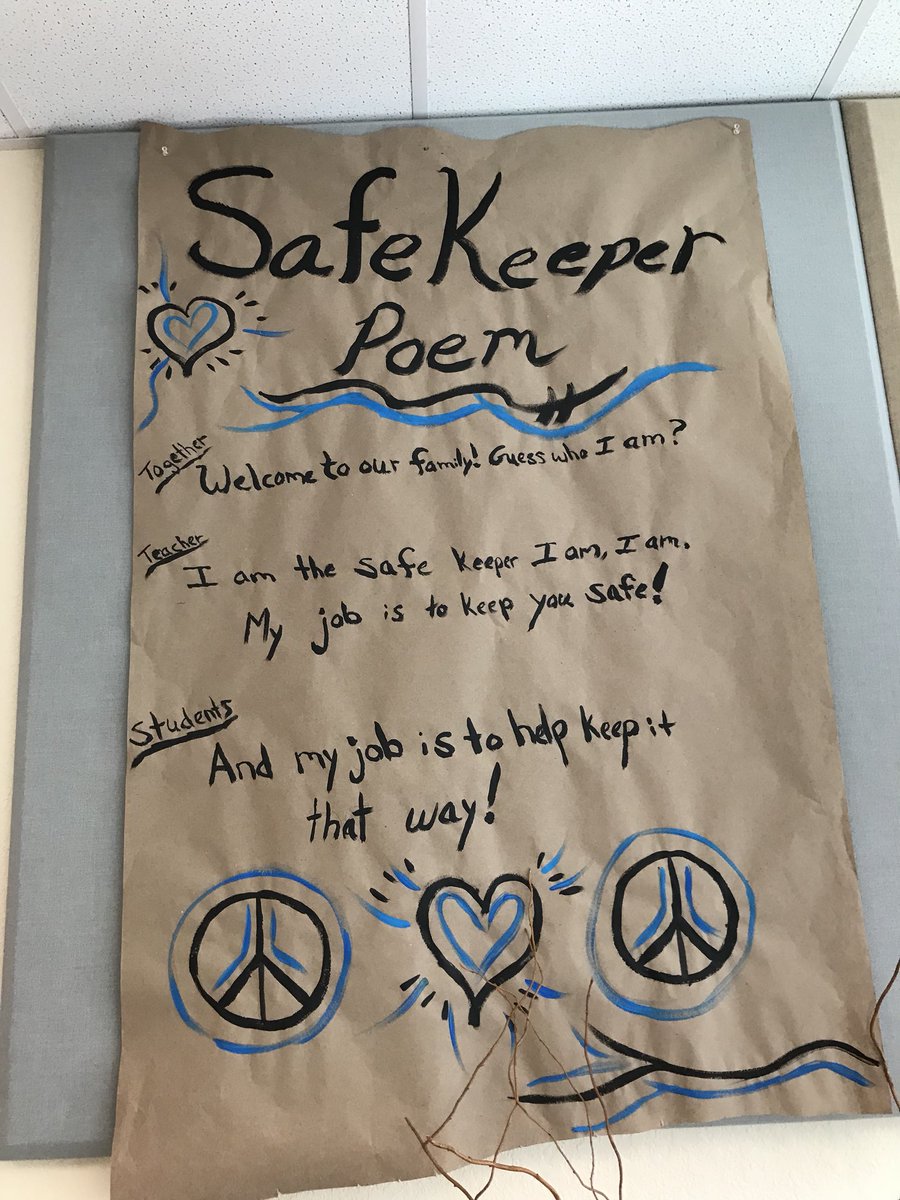 Safe Keeper
Poem
Together
Welcome to our family! Guess who I am?
Teacher
I am the safe keeper I am, I am.
My job is to keep you safe!
Students
And my job is to help keep it
that way!